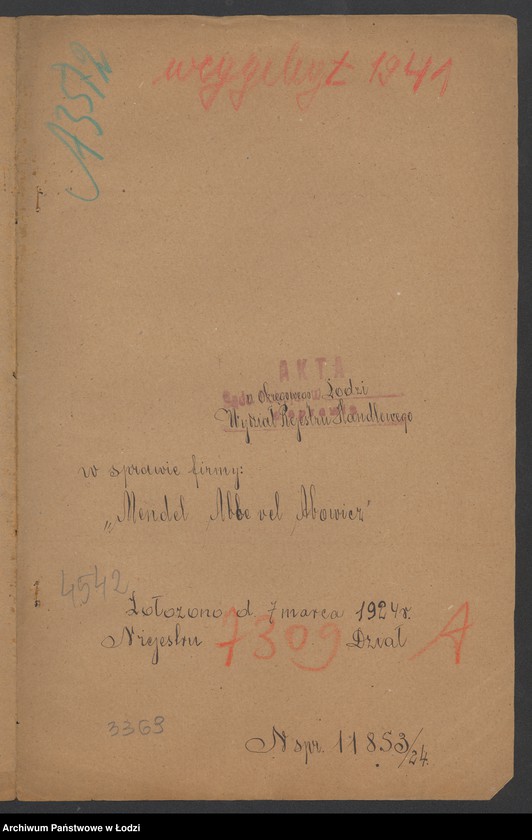 13572
weggelegt 1941
AKTA
Sądu Okręgowego w Łodzi
Wydział Rejestru Handlowego
w sprawie firmy:
„Mendel Abbe vel Abowicz"
4542
Złożono d. 7 marca 1924 r.
N rejestru 7309 Dział A
3369
N spr. 11853/24.
Archiwum Państwowe w Łodzi